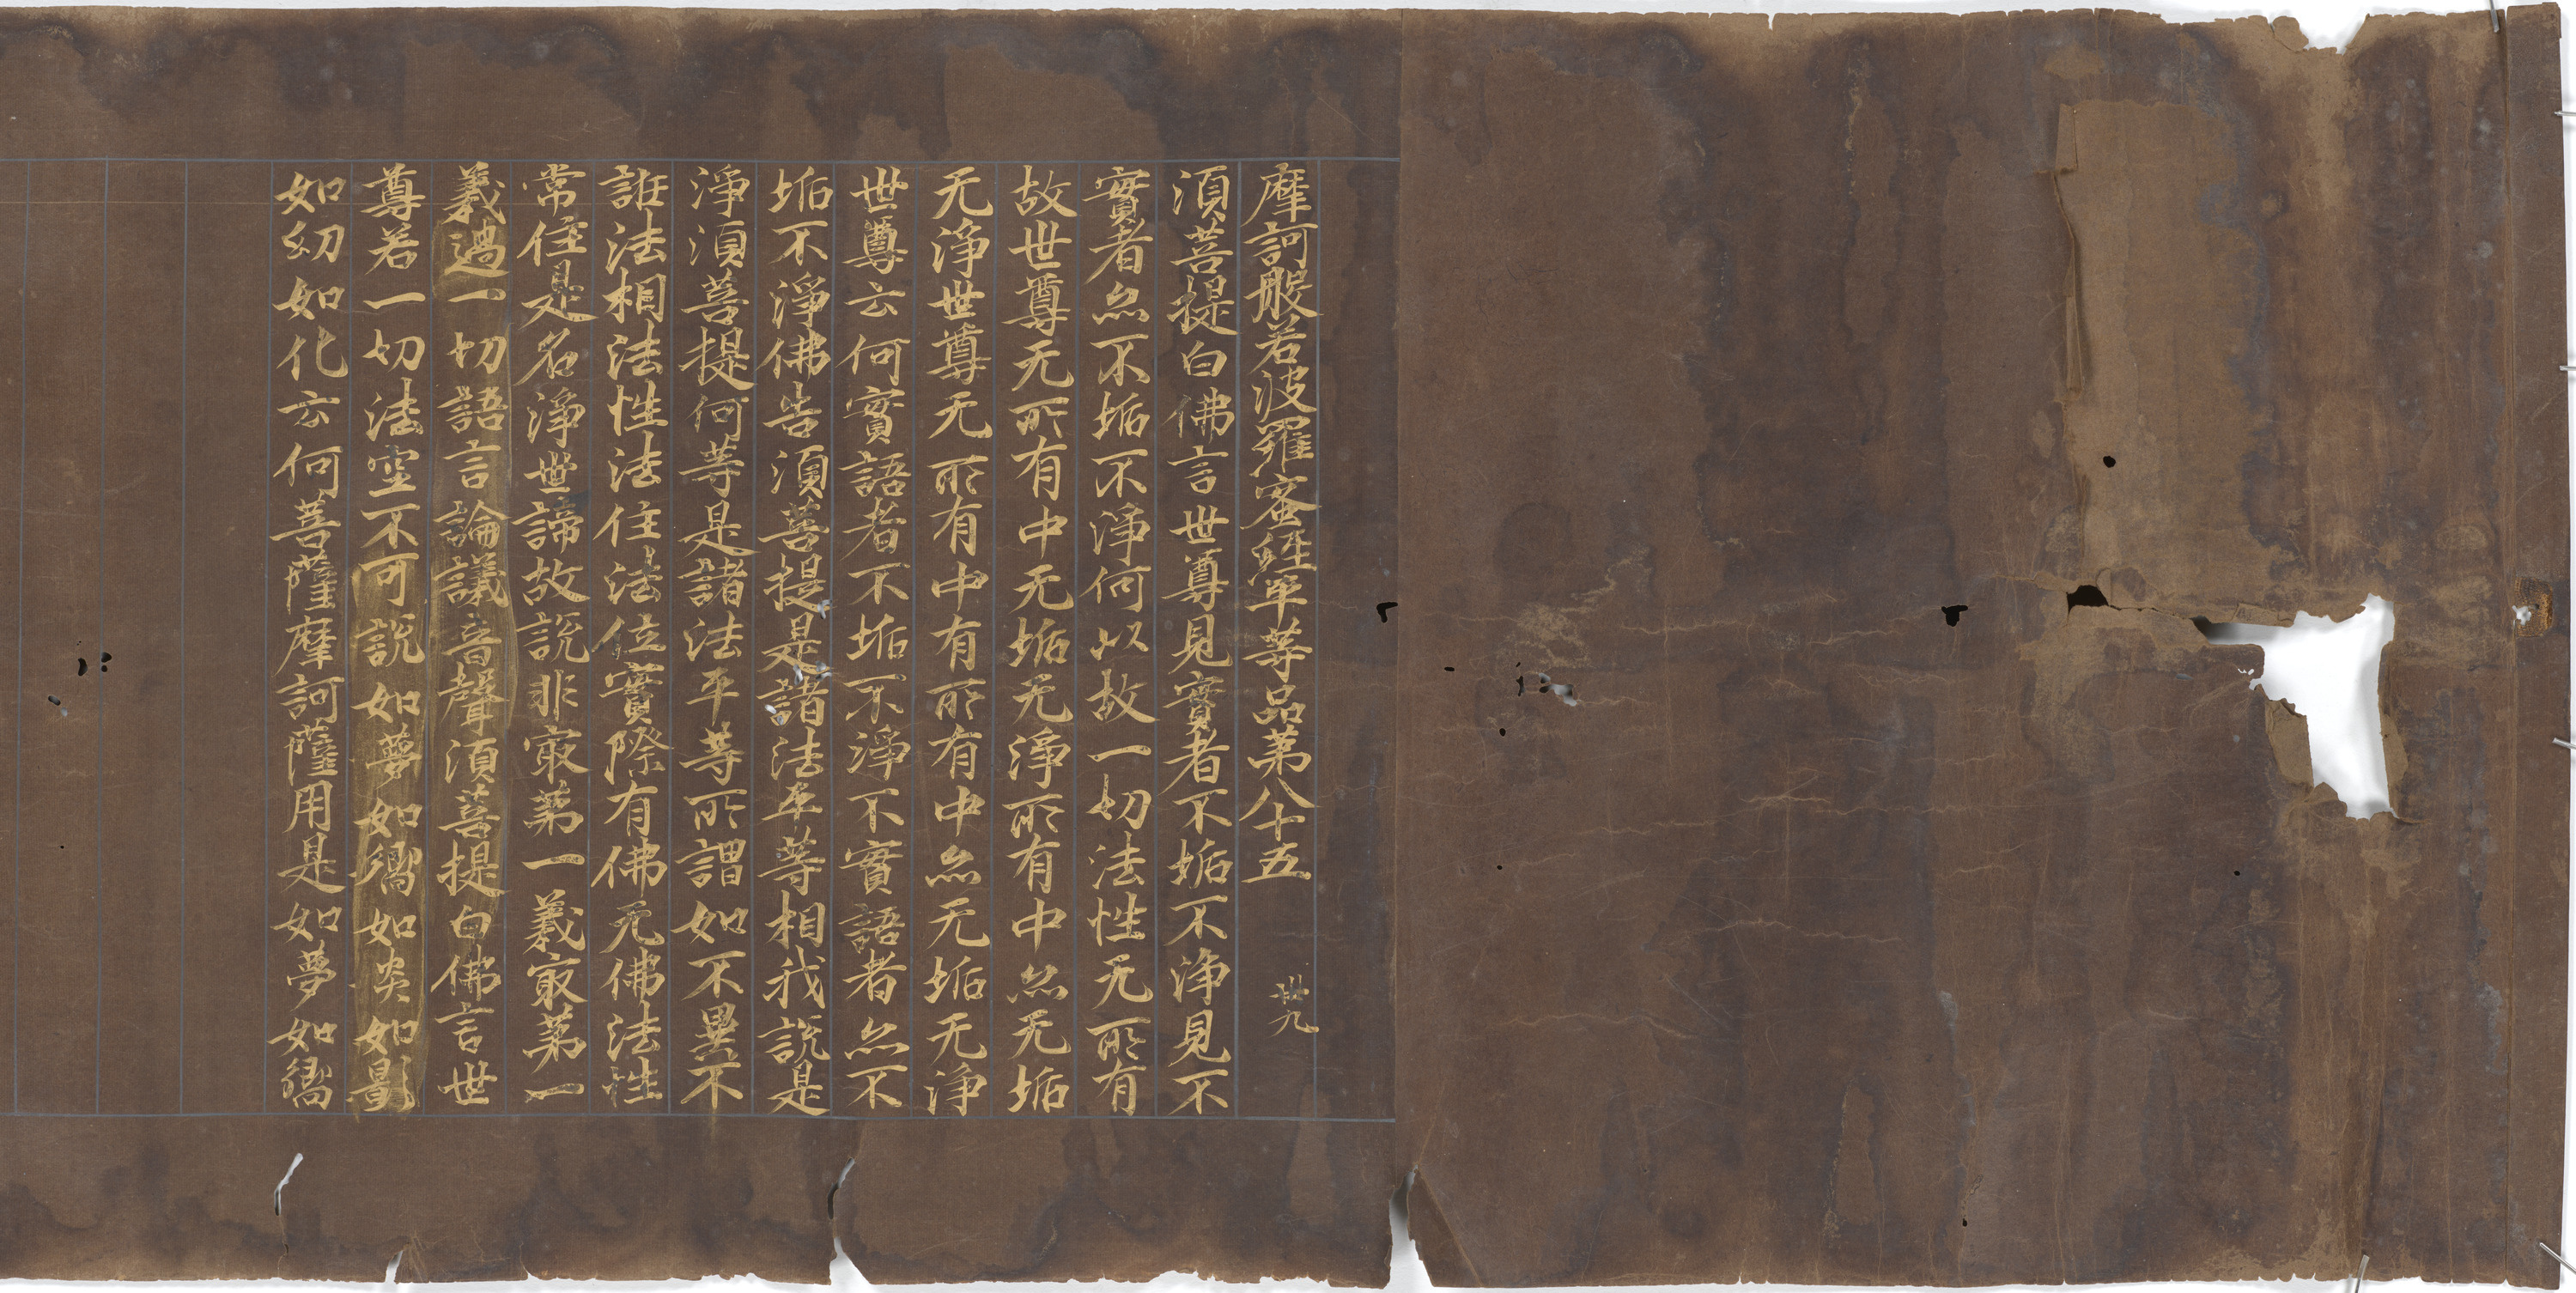 摩訶般若波羅蜜經平等品第八十五 卌九
湏菩提白佛言世尊見實者不垢不淨見不
實者亦不垢不淨何以故一切法性无所有
故世尊无所有中无垢无淨所有中亦无垢
无淨世尊无所有中有所有中亦无垢无淨
世尊云何實語者不垢不淨不實語者亦不
垢不淨佛告湏菩提是諸法平等相我說是
淨湏菩提何等是諸法平等所謂如不異不
誑法相法性法住法位實際有佛无佛法性
常住是名淨世諦故說非㝡第一義㝡第一
義過一切語言論議音聲湏菩提白佛言世
尊若一切法空不可說如夢如嚮如炎如影
如幻如化云何菩薩摩訶薩用是如夢如嚮